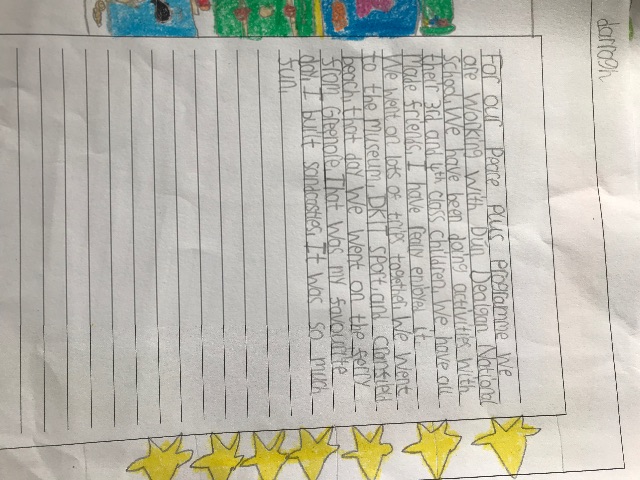 darragh
For our Peace plus programme we
are working with Dún Dealgan National
School. We have been doing activities with
their 3rd and 4th class children. We have all
made friends. I have really enjoyed it.
We went on lots of trips together. We went
to the museum, DKIT sport and
beach that day we went on the ferry
from Greenore. That was my favourite
day. I built sandcastles. It was so much
fun.